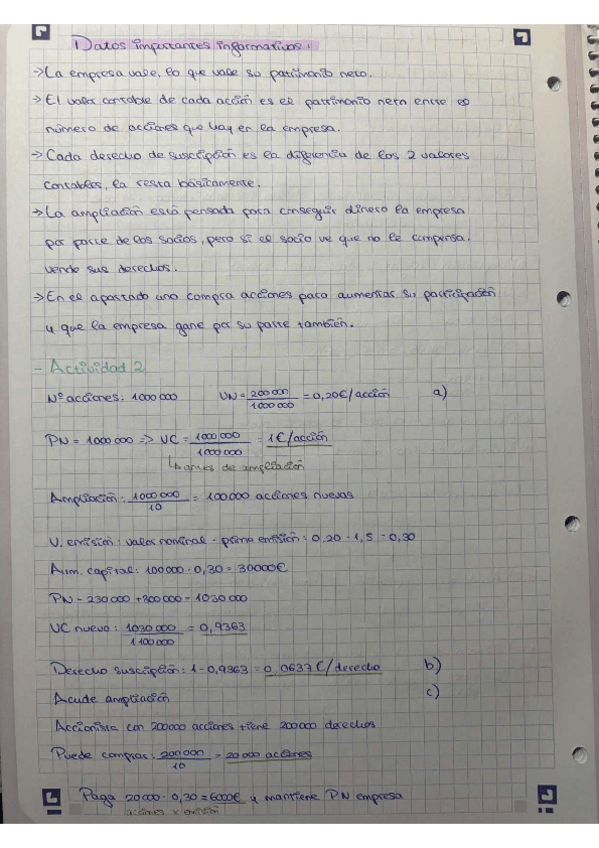 Datos importantes informativos:
→ La empresa vale, lo que vale su patrimonio neto.
→ El valor contable de cada acción es el patrimonio neto entre el
número de acciones que hay en la empresa.
→ Cada derecho de suscripción es la diferencia de los 2 valores
contables, la resta básicamente.
→ La ampliación está pensada para conseguir dinero la empresa
por parte de los socios, pero si el socio ve que no le compensa,
vende sus derechos.
→ En el apartado uno compra acciones para aumentar su participación
y que la empresa gane por su parte también.
- Actividad 2
Nº acciones: 1000 000 VN = 200 000 / 1000 000 = 0,20€/acción a)
PN = 1000 000 => VC = 1000 000 / 1000 000 = 1€/acción
↳ antes de ampliación
Ampliación: 1000 000 / 10 = 100 000 acciones nuevas
V. emisión: valor nominal · prima emisión: 0,20 · 1,5 = 0,30
Aum. capital: 100 000 · 0,30 = 30000€
PN = 230 000 + 800 000 = 1030 000
VC nuevo: 1030 000 / 1 100 000 = 0,9363
Derecho suscripción: 1 - 0,9363 = 0,0637 €/derecho b)
Acude ampliación c)
Accionista con 200000 acciones tiene 200 000 derechos
Puede comprar: 200 000 / 10 = 20 000 acciones
Paga 20 000 · 0,30 = 6000€ y mantiene PN empresa
acciones x emisión